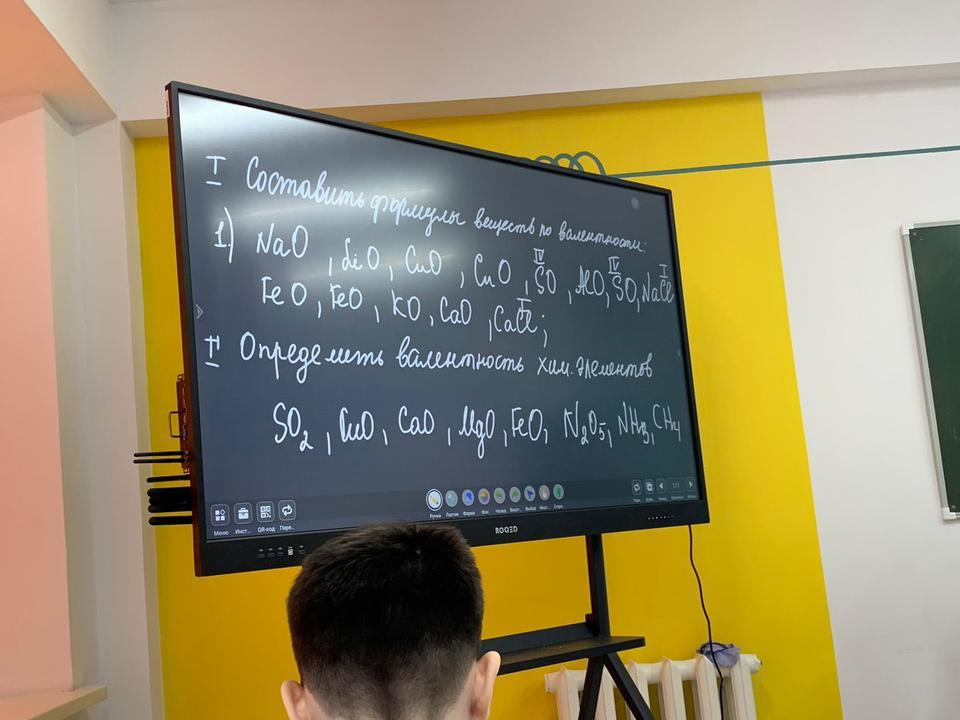 I Составить формулы веществ по валентности:
1) NaO, LiO, CuO, CuO, SO, AlO, SO, NaCl
IV IV I
FeO, FeO, KO, CaO, CaCl;
I
II Определить валентность хим. элементов
SO2, CuO, CaO, MgO, FeO, N2O5, NH3, CH4
Меню Инст... QR-код Пере...
Ручка Ластик Форма Фон Назад Выбор
1/1
ROQED